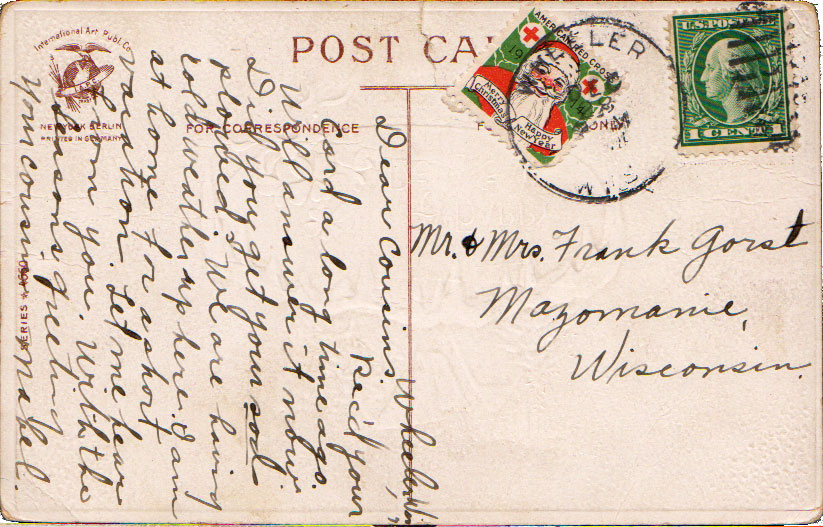 International Art Publ. Co.
NEW YORK BERLIN
PRINTED IN GERMANY
SERIES № 4660
POST CA
FOR CORRESPONDENCE
F
ONLY
AMERICAN RED CROSS
19
Merry Christmas
Happy New Year
LER
WIS
U.S. POSTAGE
1 CENT 1
Mr. & Mrs. Frank Gorst
Mazomanie,
Wisconsin.
Wheeler, Wis,
Dear Cousins,
Rec'd your
Card a long time ago.
Will answer it now.
Did you get your sod
plowed. We are having
cold weather up here. I am
at home for a short
vacation. Let me hear
from you. With the
seasons greeting
Your cousin Mabel.